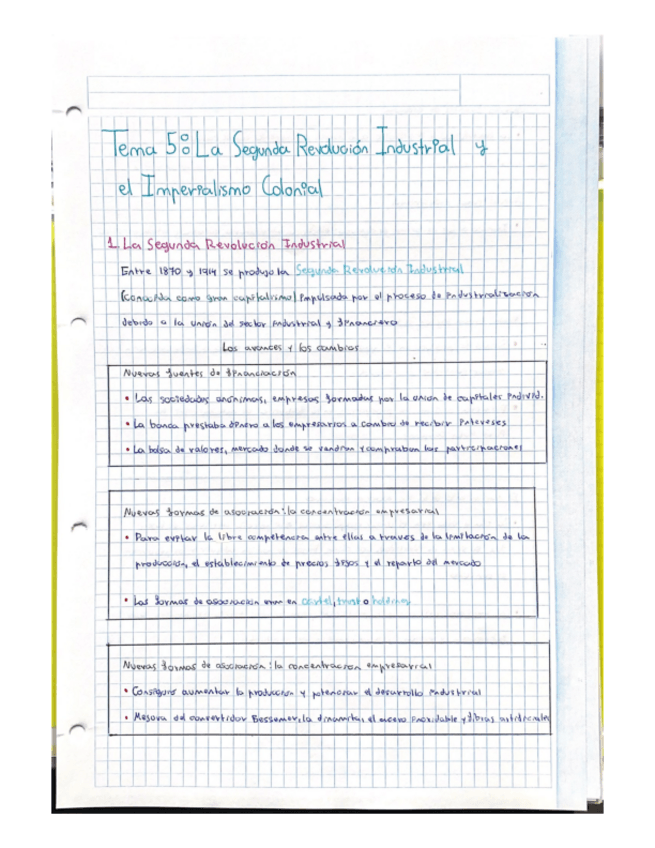 Tema 5: La Segunda Revolución Industrial y
el Imperialismo Colonial
1. La Segunda Revolución Industrial
Entre 1870 y 1914 se produjo la Segunda Revolución Industrial
(conocida como gran capitalismo) impulsada por el proceso de industrialización
debido a la unión del sector industrial y financiero
Los avances y los cambios
Nuevas fuentes de financiación
• Las sociedades anónimas, empresas formadas por la unión de capitales individ.
• La banca prestaba dinero a los empresarios a cambio de recibir intereses
• La bolsa de valores, mercado donde se vendían y compraban las participaciones
Nuevas formas de asociación: la concentración empresarial
• Para evitar la libre competencia entre ellas a traves de la limitación de la
producción, el establecimiento de precios fijos y el reparto del mercado
• Las formas de asociación eran en cartel, trust o holding
Nuevas formas de asociación: la concentración empresarial
• Consiguió aumentar la producción y potenciar el desarrollo industrial
• Mejora del convertidor Bessemer, la dinamita, el acero inoxidable y fibras artificiales